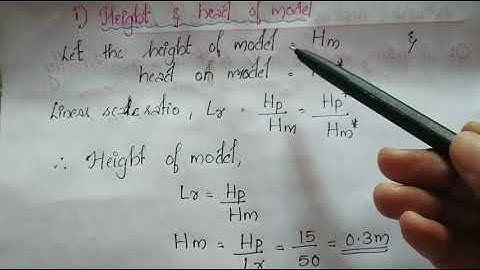 i) Height & head of model
Let the height of model = Hm &
head on model =
Linear scale ratio, Lr = Hp/Hm = Hp*/Hm*
∴ Height of model,
Lr = Hp/Hm
Hm = Hp/Lr = 15/50 = 0.3m